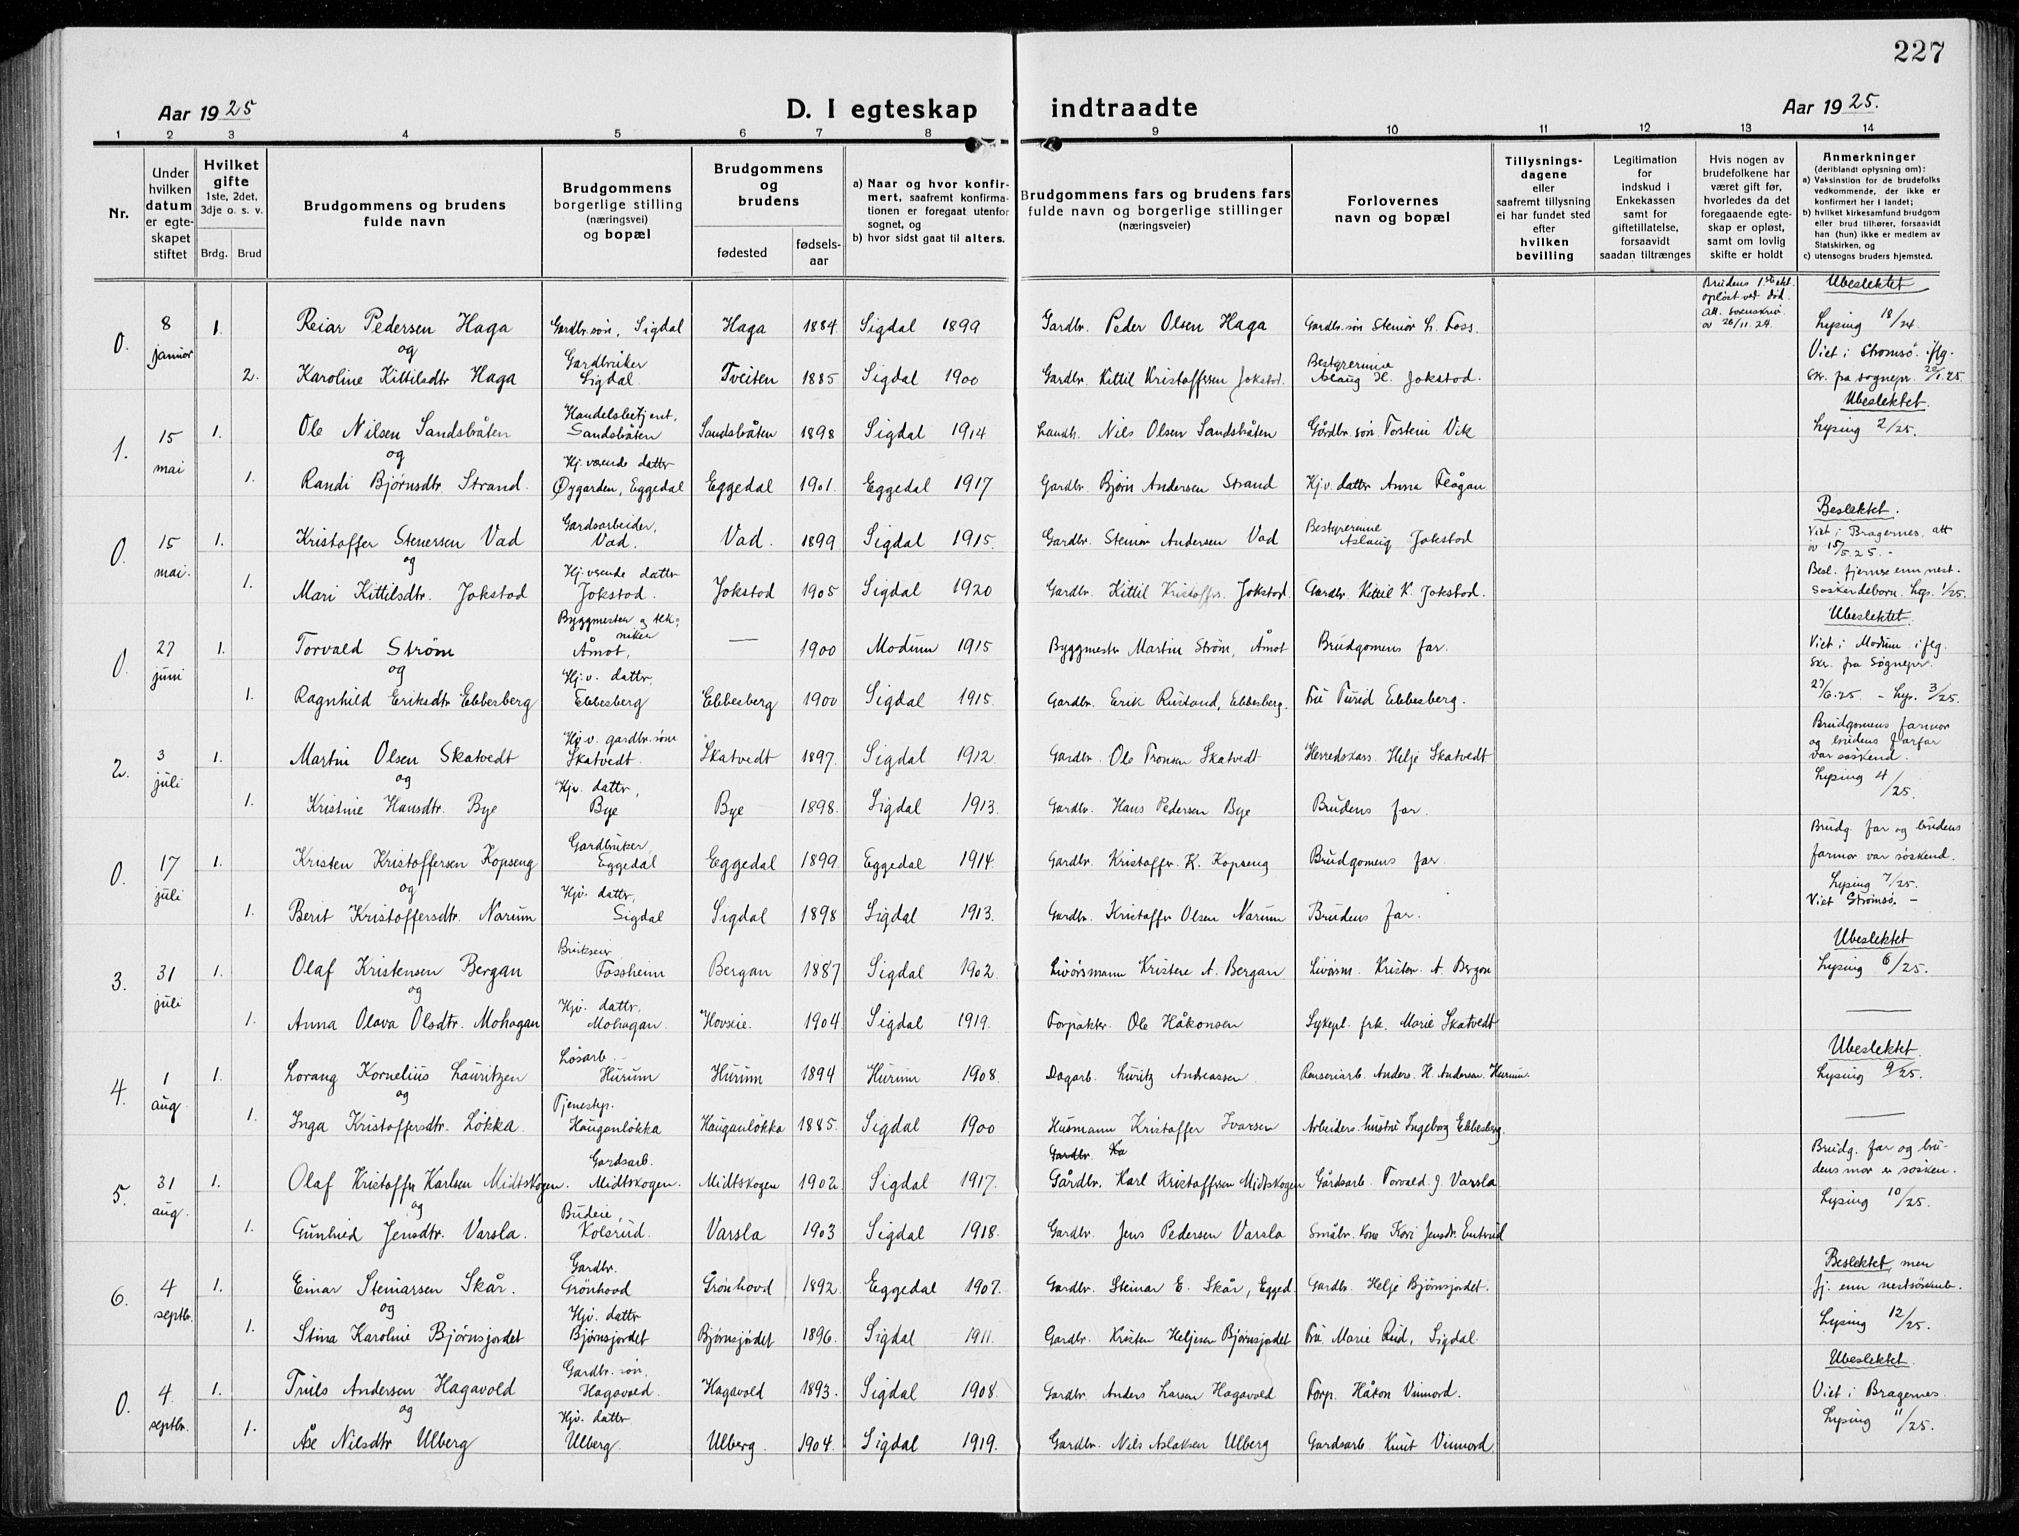 227
Aar 1925
D. I egteskap indtraadte
Aar 1925.
1 2 3 4 5 6 7 8 9 10 11 12 13 14
Nr.
Under hvilken datum er egteskapet stiftet
Hvilket gifte 1ste, 2det, 3dje o. s. v.
Brdg. Brud
Brudgommens og brudens fulde navn
Brudgommens borgerlige stilling (næringsvei) og bopæl
Brudgommens og brudens
fødested
fødsels-aar
a) Naar og hvor konfirmert, saafremt konfirmationen er foregaat utenfor sognet, og
b) hvor sidst gaat til alters.
Brudgommens fars og brudens fars fulde navn og borgerlige stillinger (næringsveier)
Forlovernes navn og bopæl
Tillysnings-dagene eller saafremt tillysning ei har fundet sted efter hvilken bevilling
Legitimation for indskud i Enkekassen samt for giftetillatelse, forsaavidt saadan tiltrænges
Hvis nogen av brudefolkene har været gift før, hvorledes da det foregaaende egteskap er opløst, samt om lovlig skifte er holdt
Anmerkninger (deriblandt oplysning om):
a) Vaksinstion for de brudefolks vedkommende, der ikke er konfirmert her i landet;
b) hvilket kirkesamfund brudgom eller brud tilhører, forsaavidt han (hun) ikke er medlem av Statskirken, og
c) utensogns bruders hjemsted.
0. 8 januar 1. Reiar Pedersen Haga Gardbr. søn, Sigdal Haga 1884 Sigdal 1899 Gardbr. Peder Olsen Haga Gardbr. søn Steinar H. Foss Brudens 1ste ekt. opløst ved død. Att. sorenskriv. av 26/11.24. Ubeslektet Lysing 18/24.
og
2. Karoline Kittilsdtr Haga Gardbruker Sigdal. Tveiten 1885 Sigdal 1900 Gardbr. Kittil Kristoffersen Jokstad. Bestyrerinne Aslaug K. Jokstad. Viet i Strømsø. iflg. skr. fra sognepr. 20/1.25.
1. 15 mai 1. Ole Nilsen Sandsbråten Handelsbetjent, Sandsbråten Sandsbråten 1898 Sigdal 1914 Landh. Nils Olsen Sandsbråten Gårdbr. søn Torstein Vik Ubeslektet. Lysing 2/25.
og
1. Randi Bjørnsdtr. Strand. Hj. værende datter Øygarden, Eggedal Eggedal 1901. Eggedal 1917 Gardbr. Bjørn Andersen Strand Hj.v. datter Anna Flågan
0 15 mai. 1. Kristoffer Stenersen Vad Gardsarbeider, Vad. Vad. 1899 Sigdal 1915. Gardbr. Steinar Andersen Vad Bestyrerinne Aslaug Jokstad Beslektet. Viet i Bragernes, att av 15/5.25. -
og
1. Mari Kittilsdtr. Jokstad Hj. værende datter Jokstad. Jokstad 1905 Sigdal 1920 Gardbr. Kittil Kristoffer. Jokstad. Gardbr. Kittil K. Jokstad. Besl. fjernere enn nest-søskendeborn. Lys. 1/25.
0 27 juni 1. Torvald Strøm Byggmester og tekniker Åmot, — 1900 Modum 1915 Byggmester Martin Strøm, Åmot Brudgomens far. Ubeslektet. Viet i Modum iflg. skr. fra Sognepr.
og
1. Ragnhild Eriksdtr Ebbesberg Hj.v. datter, Ebbesberg Ebbesberg 1900 Sigdal 1915. Gardbr. Erik Rustand, Ebbesberg. Fru Turid Ebbesberg. 27/6.25. - Lys. 3/25.
2. 3 juli 1. Martin Olsen Skatvedt Hj.v. gardbr. søn Skatvedt. Skatvedt 1897. Sigdal 1912. Gardbr. Ole Tronsen Skatvedt Herredskass. Helje Skatvedt Brudgomens farmor og brudens farfar var søskend.
og
1. Kristine Hansdtr. Bye Hjv. datter, Bye Bye 1898. Sigdal 1913. Gardbr. Hans Pedersen Bye Brudens far. Lysing 4/25.
0. 17 juli 1. Kristen Kristoffersen Kopseng Gardbruker Eggedal Eggedal 1899. Eggedal 1914. Gardbr. Kristoffer K. Kopseng Brudgomens far. Brudg. far og brudens farmor var søskend.
og
1. Berit Kristoffersdtr. Narum Hjv. datter, Sigdal Sigdal 1898 Sigdal 1913. Gardbr. Kristoffer Olsen Narum Brudens far. Lysing 7/25. Viet Strømsø. -
3. 31 juli 1. Olaf Kristensen Bergan Brukseier Fossheim Bergan 1887 Sigdal 1902. Livørsmann Kristen A. Bergan Livørsm. Kristen A. Bergan Ubeslektet Lysing 6/25.
og
1. Anna Olava Olsdtr. Mohagan Hjv. datter, Mohagan. Hovseie. 1904. Sigdal 1919. Forpakter Ole Håkonsen Sykepl. frk. Marie Skatvedt —
4. 1 aug. 1. Lorang Kornelius Lauritzen Løsarb. Hurum Hurum 1894 Hurum 1908. Dagarb. Luritz Andreassen Renseriarb. Anders H. Andersen Hurum. Ubeslektet. Lysing 9/25.
og
1. Inga Kristoffersdtr. Løkka. Tjenestep. Hauganløkka Hauganløkka 1885. Sigdal 1900 Husmann Kristoffer Ivarsen Arbeiders hustru Ingeborg Ebbesberg —
Gardbr. Ka
5. 31 aug. 1. Olaf Kristoffer Karlsen Midtskogen. Gardsarb. Midtskogen. Midtskogen 1902. Sigdal 1917. Gårdbr. Karl Kristoffersen Midtskogen Gårdsarb. Torvald J. Varsla Brudg. far og brudens mor er søsken.
og
1. Gunhild Jensdtr. Varsla. Budeie, Kolsrud. Varsla 1903 Sigdal 1918. Gardbr. Jens Pedersen Varsla Småbr. kone Kari Jensdr. Enterud Lysing 10/25.
6. 4 septbr. 1. Einar Steinarsen Skår. Gardbr. Grønhovd Grønhovd 1892. Eggedal 1907. Gardbr. Steinar E. Skår, Egged. Gardb. Helje Bjørnsjordet. Beslektet, men fj. enn nestsøskenb.
og
1. Stina Karoline Bjørnsjordet Hjv. datter Bjørnsjordet Bjørnsjødet 1896. Sigdal 1911. Gardbr. Kristen Heljesen Bjørnsjødet Fru Marie Rud, Sigdal. Lysing 12/25.
0. 4. septbr. 1. Truls Andersen Hagavold Gardbr. søn, Hagavold. Hagavold 1893. Sigdal 1908. Gardbr. Anders Larsen Hagavold Forp. Håkon Vinnord. Ubeslektet. Viet i Bragernes.
og
1. Åse Nilsdtr Ulberg Hjv. datter Ulberg. Ulberg. 1904. Sigdal 1919. Gardbr. Nils Aslaksen Ulberg Gardsarb. Knut Vinnord. Lysing 11/25.